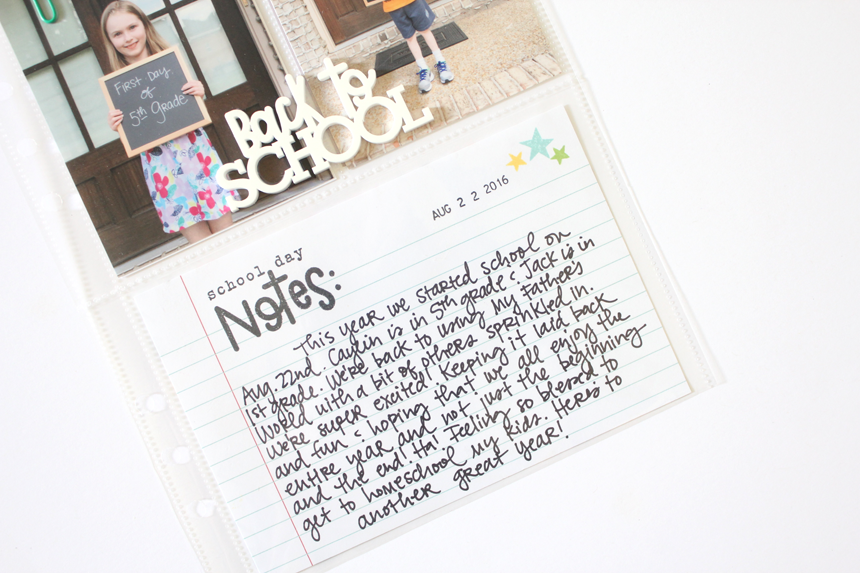 First Day
of
5th Grade
Back to
SCHOOL
AUG 2 2 2016
school day
Notes:
This year we started school on
Aug. 22nd. Caylin is in 5th grade & Jack is in
1st grade. We're back to using My Father's
World with a bit of others sprinkled in.
We're super excited! Keeping it laid back
and fun & hoping that we all enjoy the
entire year and not just the beginning
and the end! Ha! Feeling so blessed to
get to homeschool my kids. Here's to
another great year!